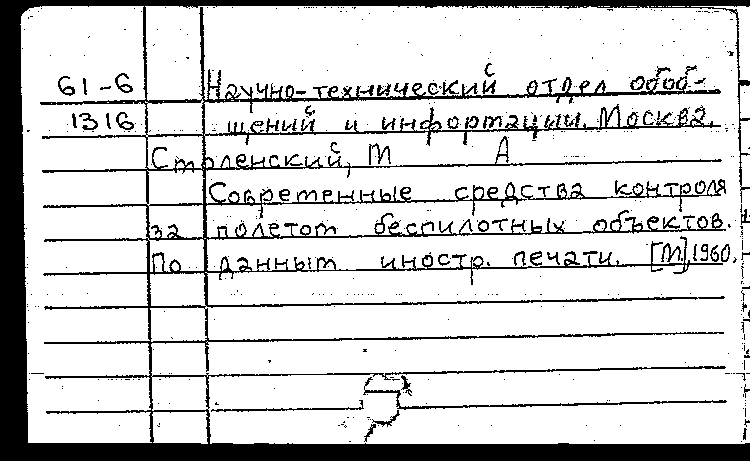 61-6 Научно-технический отдел обоб-
1316 щений и информации. Москва.
Смоленский, М А
Современные средства контроля
за полетом беспилотных объектов.
По данным иностр. печати. [М], 1960.